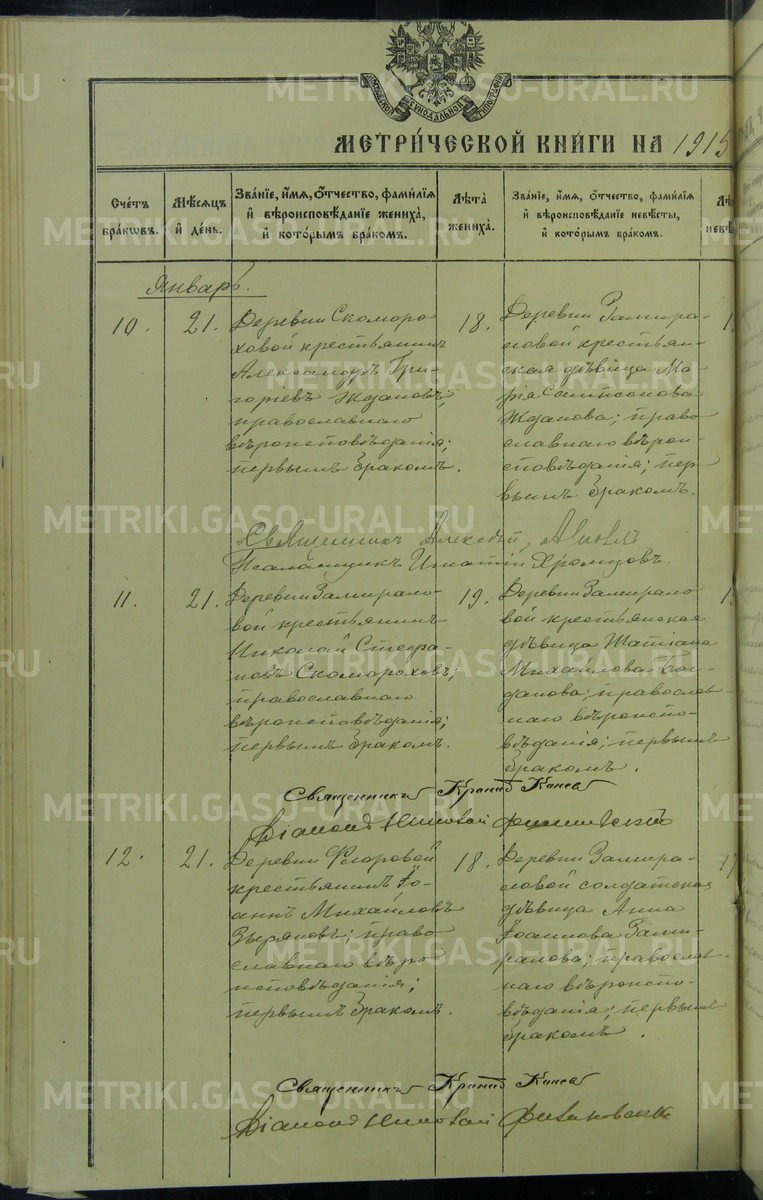 МЕТРИ́ЧЕСКОЙ КНИ́ГИ НА 1915
Сче́тъ бра́кѡвъ.
Мѣ́сяцъ и́ де́нь.
Зва́нїе, и́мя, ѻ́тчество, фами́лїя и́ вѣроисповѣ́данїе жениха̀, и́ кото́рымъ бра́комъ.
Лѣ́та жениха̀.
Зва́нїе, и́мя, ѻ́тчество, фами́лїя и́ вѣроисповѣ́данїе невѣ́сты, и́ кото́рымъ бра́комъ.
Январь.
10.
21.
Деревни Скоморо-
ховой крестьянинъ
Александръ Гри-
горіевъ Ждановъ;
православнаго
вѣроисповѣданія;
первымъ бракомъ.
18.
Деревни Замира-
ловой крестьян-
ская дѣвица Ма-
рія Сампсонова
Жданова; право-
славнаго вѣрои-
сповѣданія; пер-
вымъ бракомъ.
Священникъ Алексѣй
Псаломщикъ Игнатій Хромцовъ.
11.
21.
Деревни Замирало-
вой крестьянинъ
Николай Стефа-
новъ Скомороховъ;
православнаго
вѣроисповѣданія;
первымъ бракомъ.
19.
Деревни Замирало-
вой крестьянская
дѣвица Татіана
Михаилова
православ-
наго вѣроиспо-
вѣданія; первымъ
бракомъ.
Священникъ Кронидъ
Діаконъ Николай
12.
21.
Деревни Федоровой
крестьянинъ Іо-
аннъ Михайловъ
Зыряновъ; право-
славнаго вѣро-
исповѣданія;
первымъ бракомъ.
18.
Деревни Замира-
ловой солдатская
дѣвица Анна
Іоаннова Зами-
ралова; православ-
наго вѣроиспо-
вѣданія; первымъ
бракомъ.
17
Священникъ Кронидъ
Діаконъ Николай
METRIKI.GASO-URAL.RU